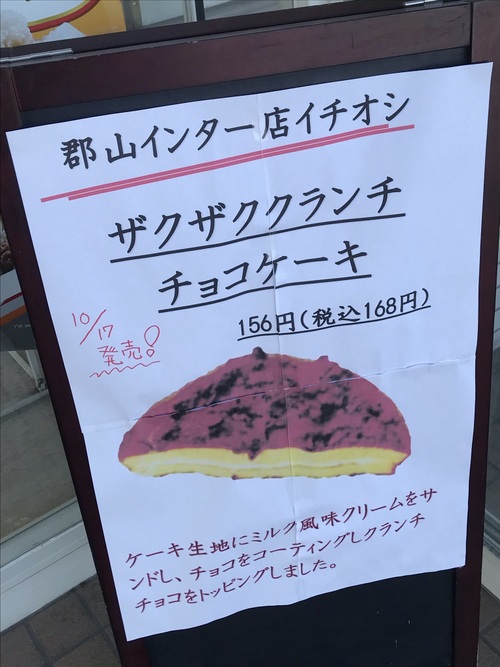 郡山インター店イチオシ
ザクザククランチ
チョコケーキ
156円(税込168円)
10/17
発売!
ケーキ生地にミルク風味クリームをサ
ンドし、チョコをコーティングしクランチ
チョコをトッピングしました。